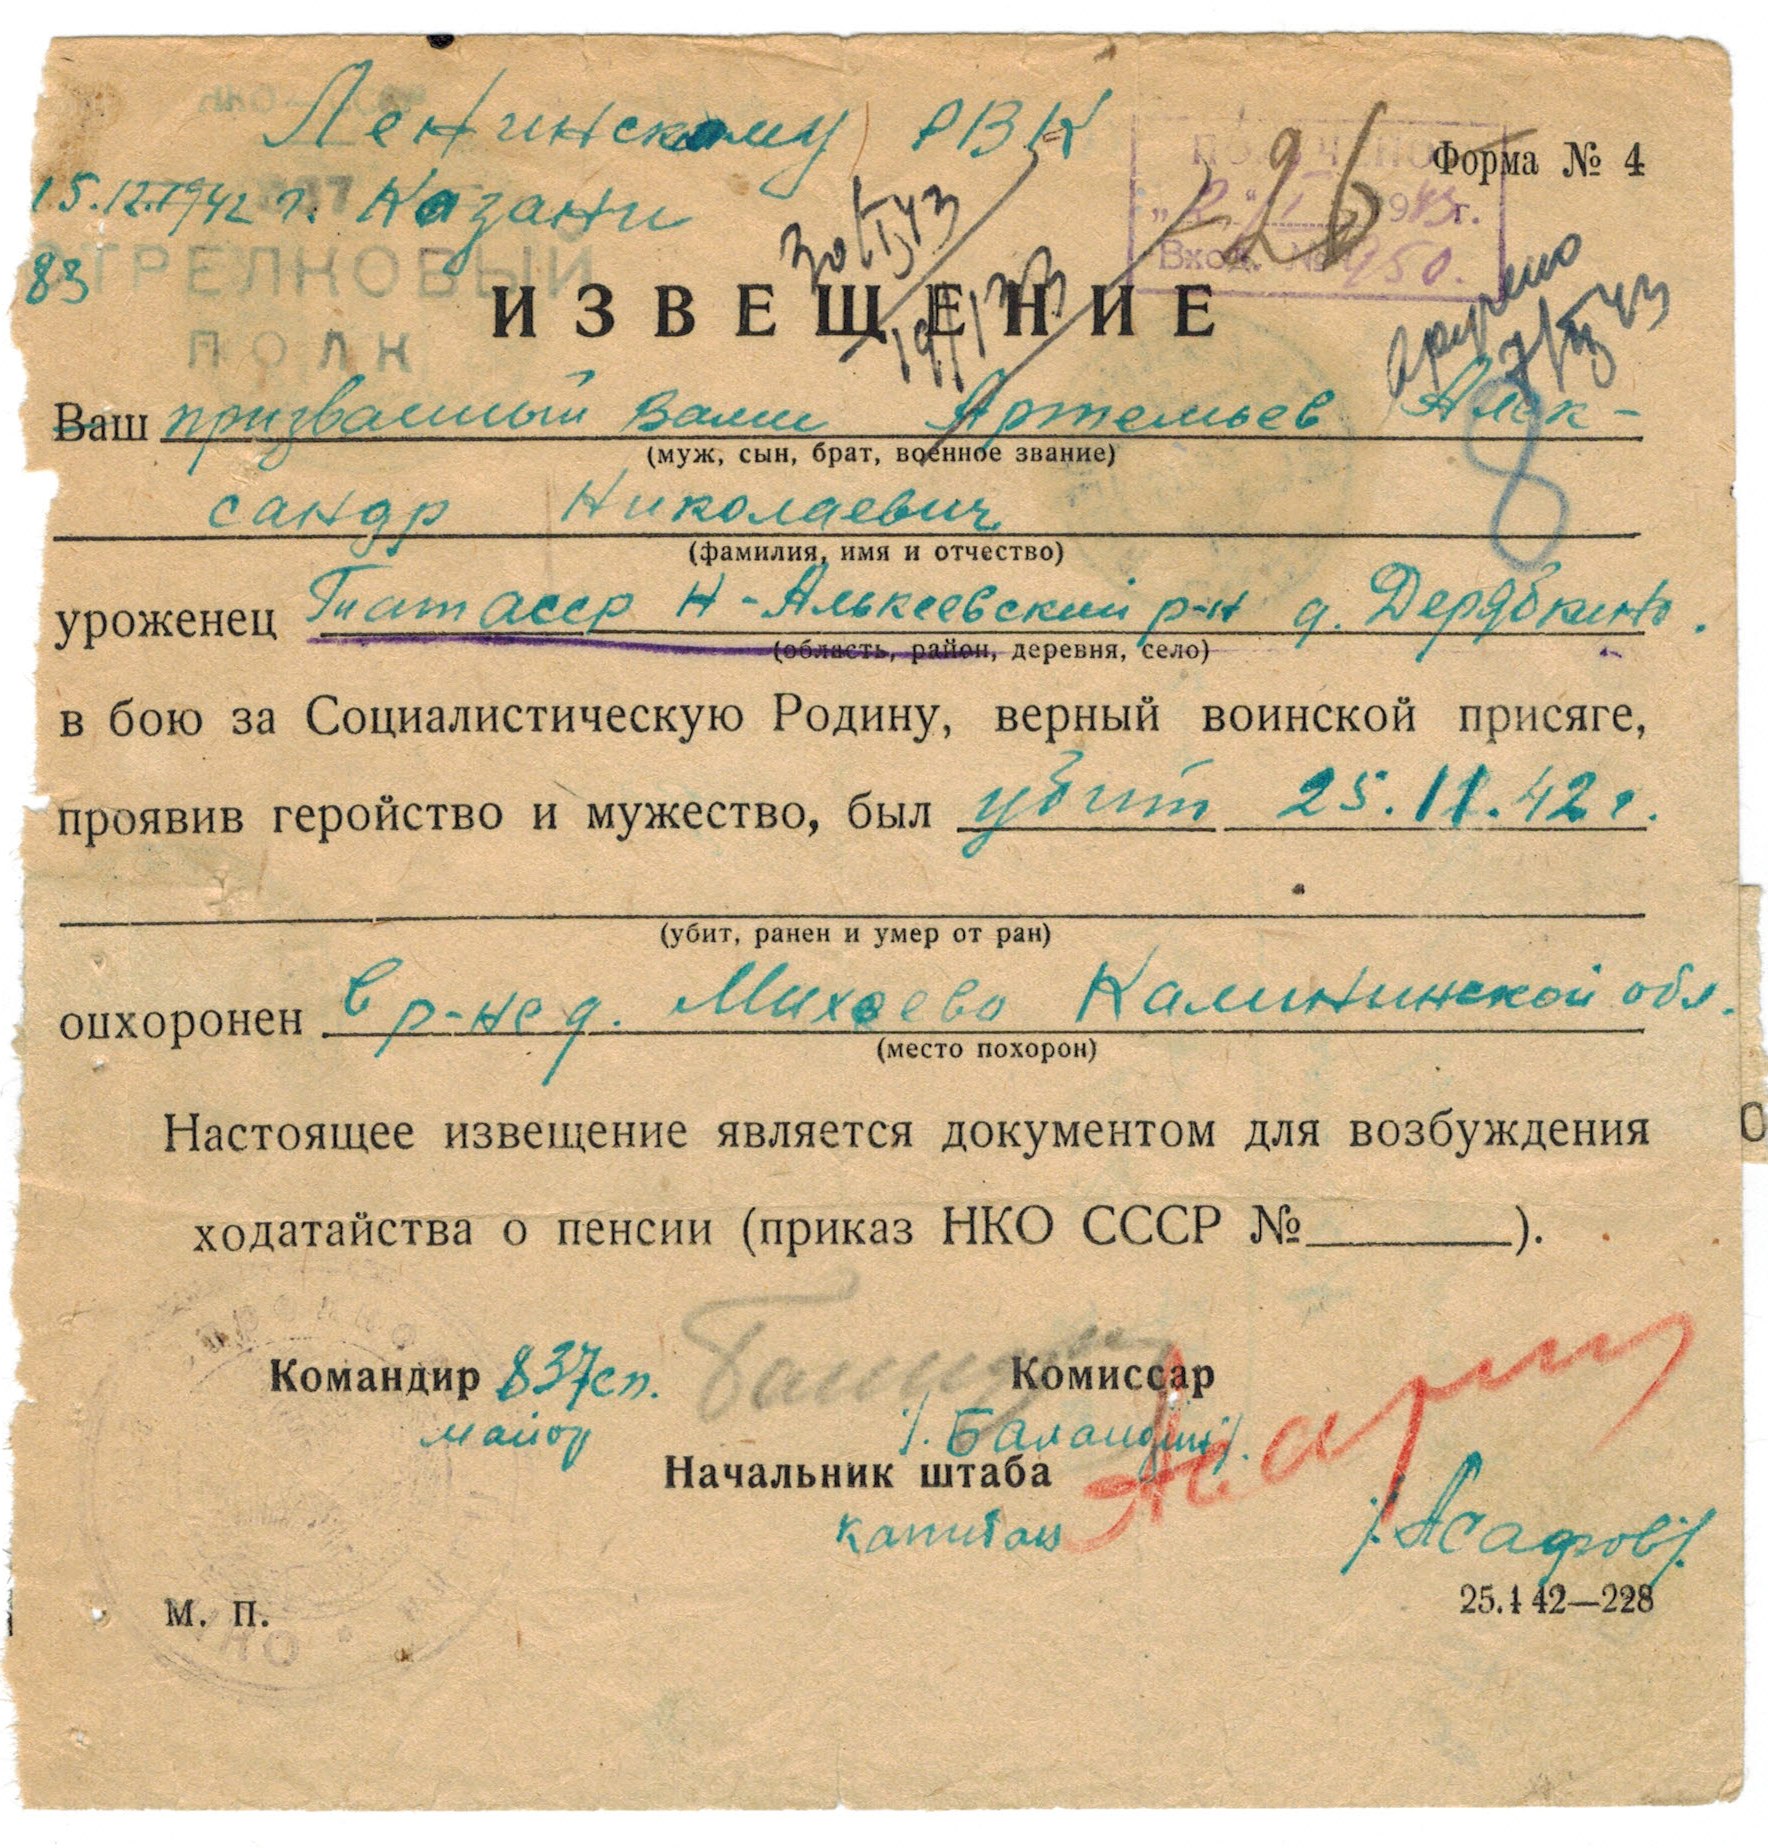 Ленинскому РВК
Форма № 4
15.12.1942 г. Казани
ПОЛУЧЕНО
1943г.
Вход. № 950.
296
30/I 43
19/I 43
83
СТРЕЛКОВЫЙ
ПОЛК
ИЗВЕЩЕНИЕ
8
Ваш призванный Вами Артемьев Алек-
(муж, сын, брат, военное звание)
сандр Николаевич
(фамилия, имя и отчество)
уроженец Татасср Н-Алькеевский р-н д. Дердбкино.
(область, район, деревня, село)
в бою за Социалистическую Родину, верный воинской присяге,
проявив геройство и мужество, был убит 25.11.42 г.
(убит, ранен и умер от ран)
охоронен в р-не д. Михеево Калининской обл.
(место похорон)
Настоящее извещение является документом для возбуждения
ходатайства о пенсии (приказ НКО СССР №______).
Командир 837сп. Комиссар
майор /. Баландин/.
Начальник штаба
капитан /. Асафов/.
М. П.
25.1 42—228